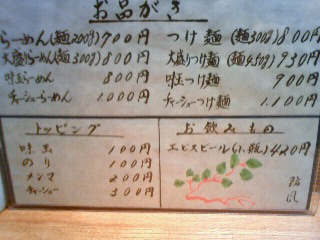 お品がき
らーめん(麺200g)700円
大盛りらーめん(麺300g)800円
味玉らーめん 800円
チャーシューらーめん 1.000円
つけ麺(麺300g)800円
大盛り麺(麺450g)930円
味玉つけ麺 900円
チャーシューつけ麺 1.100円
トッピング
味玉 100円
のり 100円
メンマ 200円
チャーシュー 300円
お飲みもの
エビスビール(小瓶)420円